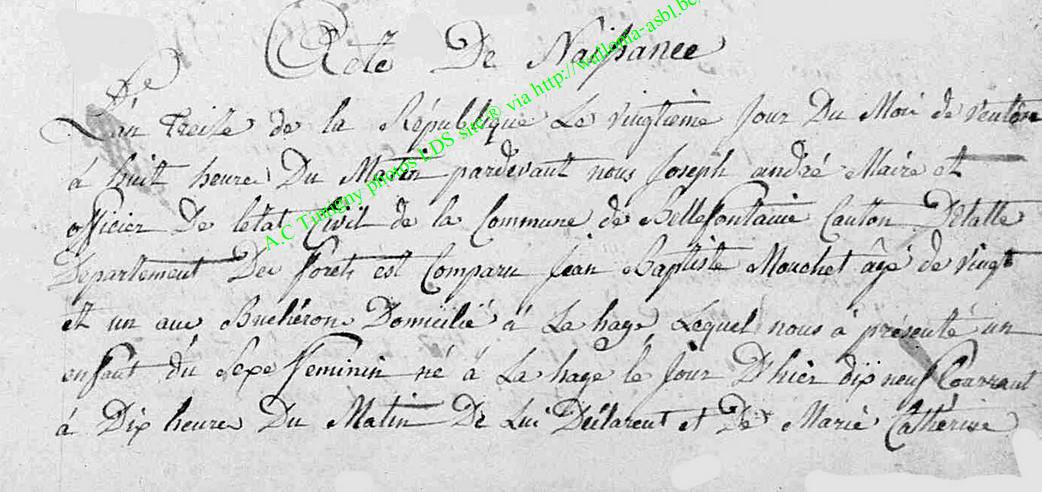 Acte De Naissance
L'an treise de la République Le vingtieme Jour Du Moi de ventôse
à huit heure Du Matin pardevant nous Joseph andré Maire et
officier De letat Civil de la Commune de Bellefontaine Canton Detalle
Departement Des forets est Comparu Jean Baptiste Mouchet âgé de vingt
et un ans Buchéron Domicilié à La hage Lequel nous à présenté un
enfant du Sexe feminin né à La hage le Jour D'hier dix neuf Courrant
à Dix heures Du Matin De Lui Déclarent et De Marie Catherine
A.C Tintigny photos LDS site® via http://wallonia-asbl.be/